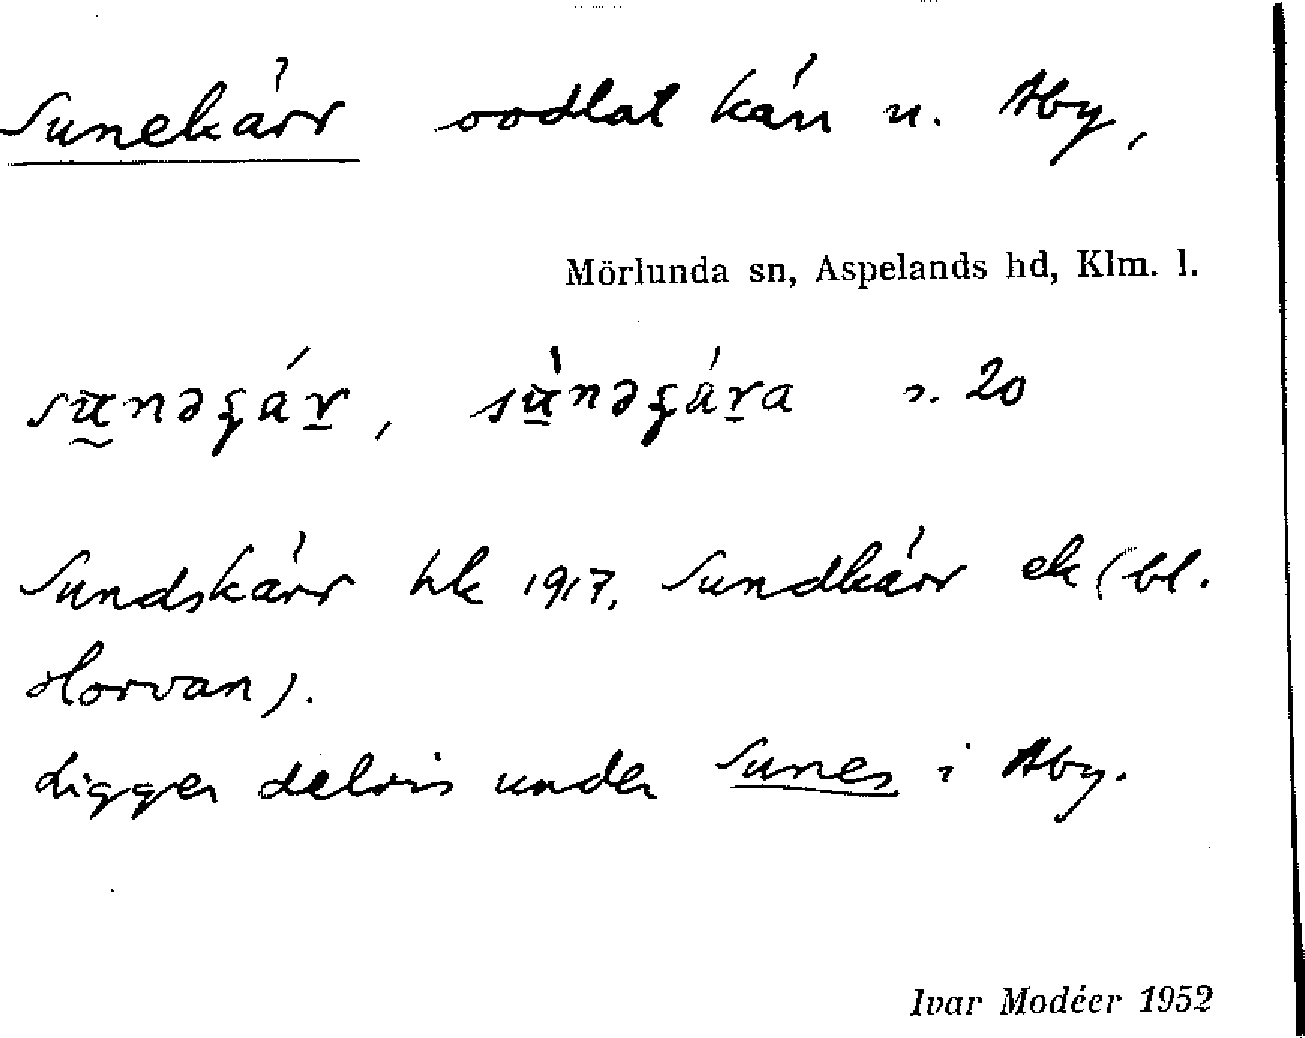 Sunekärr oodlat kärr u. Åby,
Mörlunda sn, Aspelands hd, Klm. l.
20
Sundskärr hk 1917, Sundkärr ek (bl.
Horvan).
Ligger delvis under Sunes i Åby.
Ivar Modéer 1952